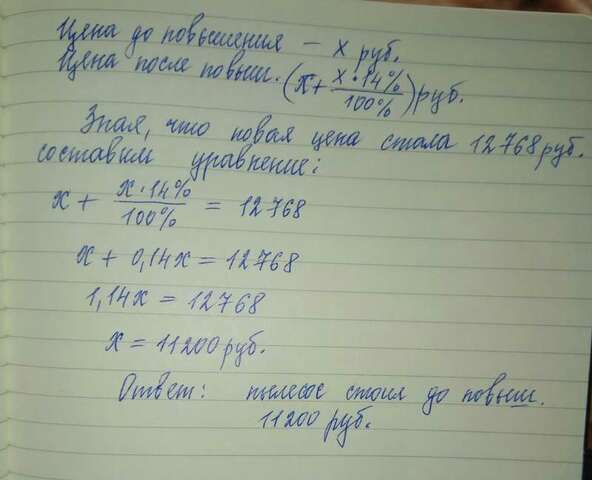 Цена до повышения – x руб.
Цена после повыш. (x + x·14% / 100%) руб.
Зная, что новая цена стала 12768 руб.
составим уравнение:
x + x·14% / 100% = 12768
x + 0,14x = 12768
1,14x = 12768
x = 11200 руб.
Ответ: пылесос стоил до повыш.
11200 руб.